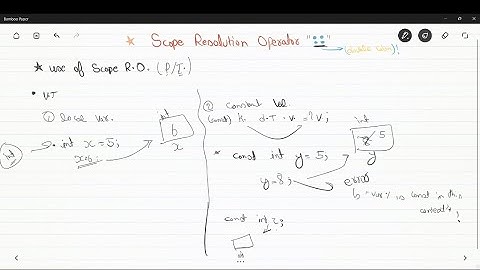 Bamboo Paper
★ Scope Resolution Operator "::"
(double colon)!
★ use of Scope R.O. (P/I.)
① local var.
int x = 5;
x=6;
int
6
x
int
① constant
(const) K. d.T. v. = ? V;
★ const int y = 5;
y=8;
error
int
8 5
y
is const in this
const int z;